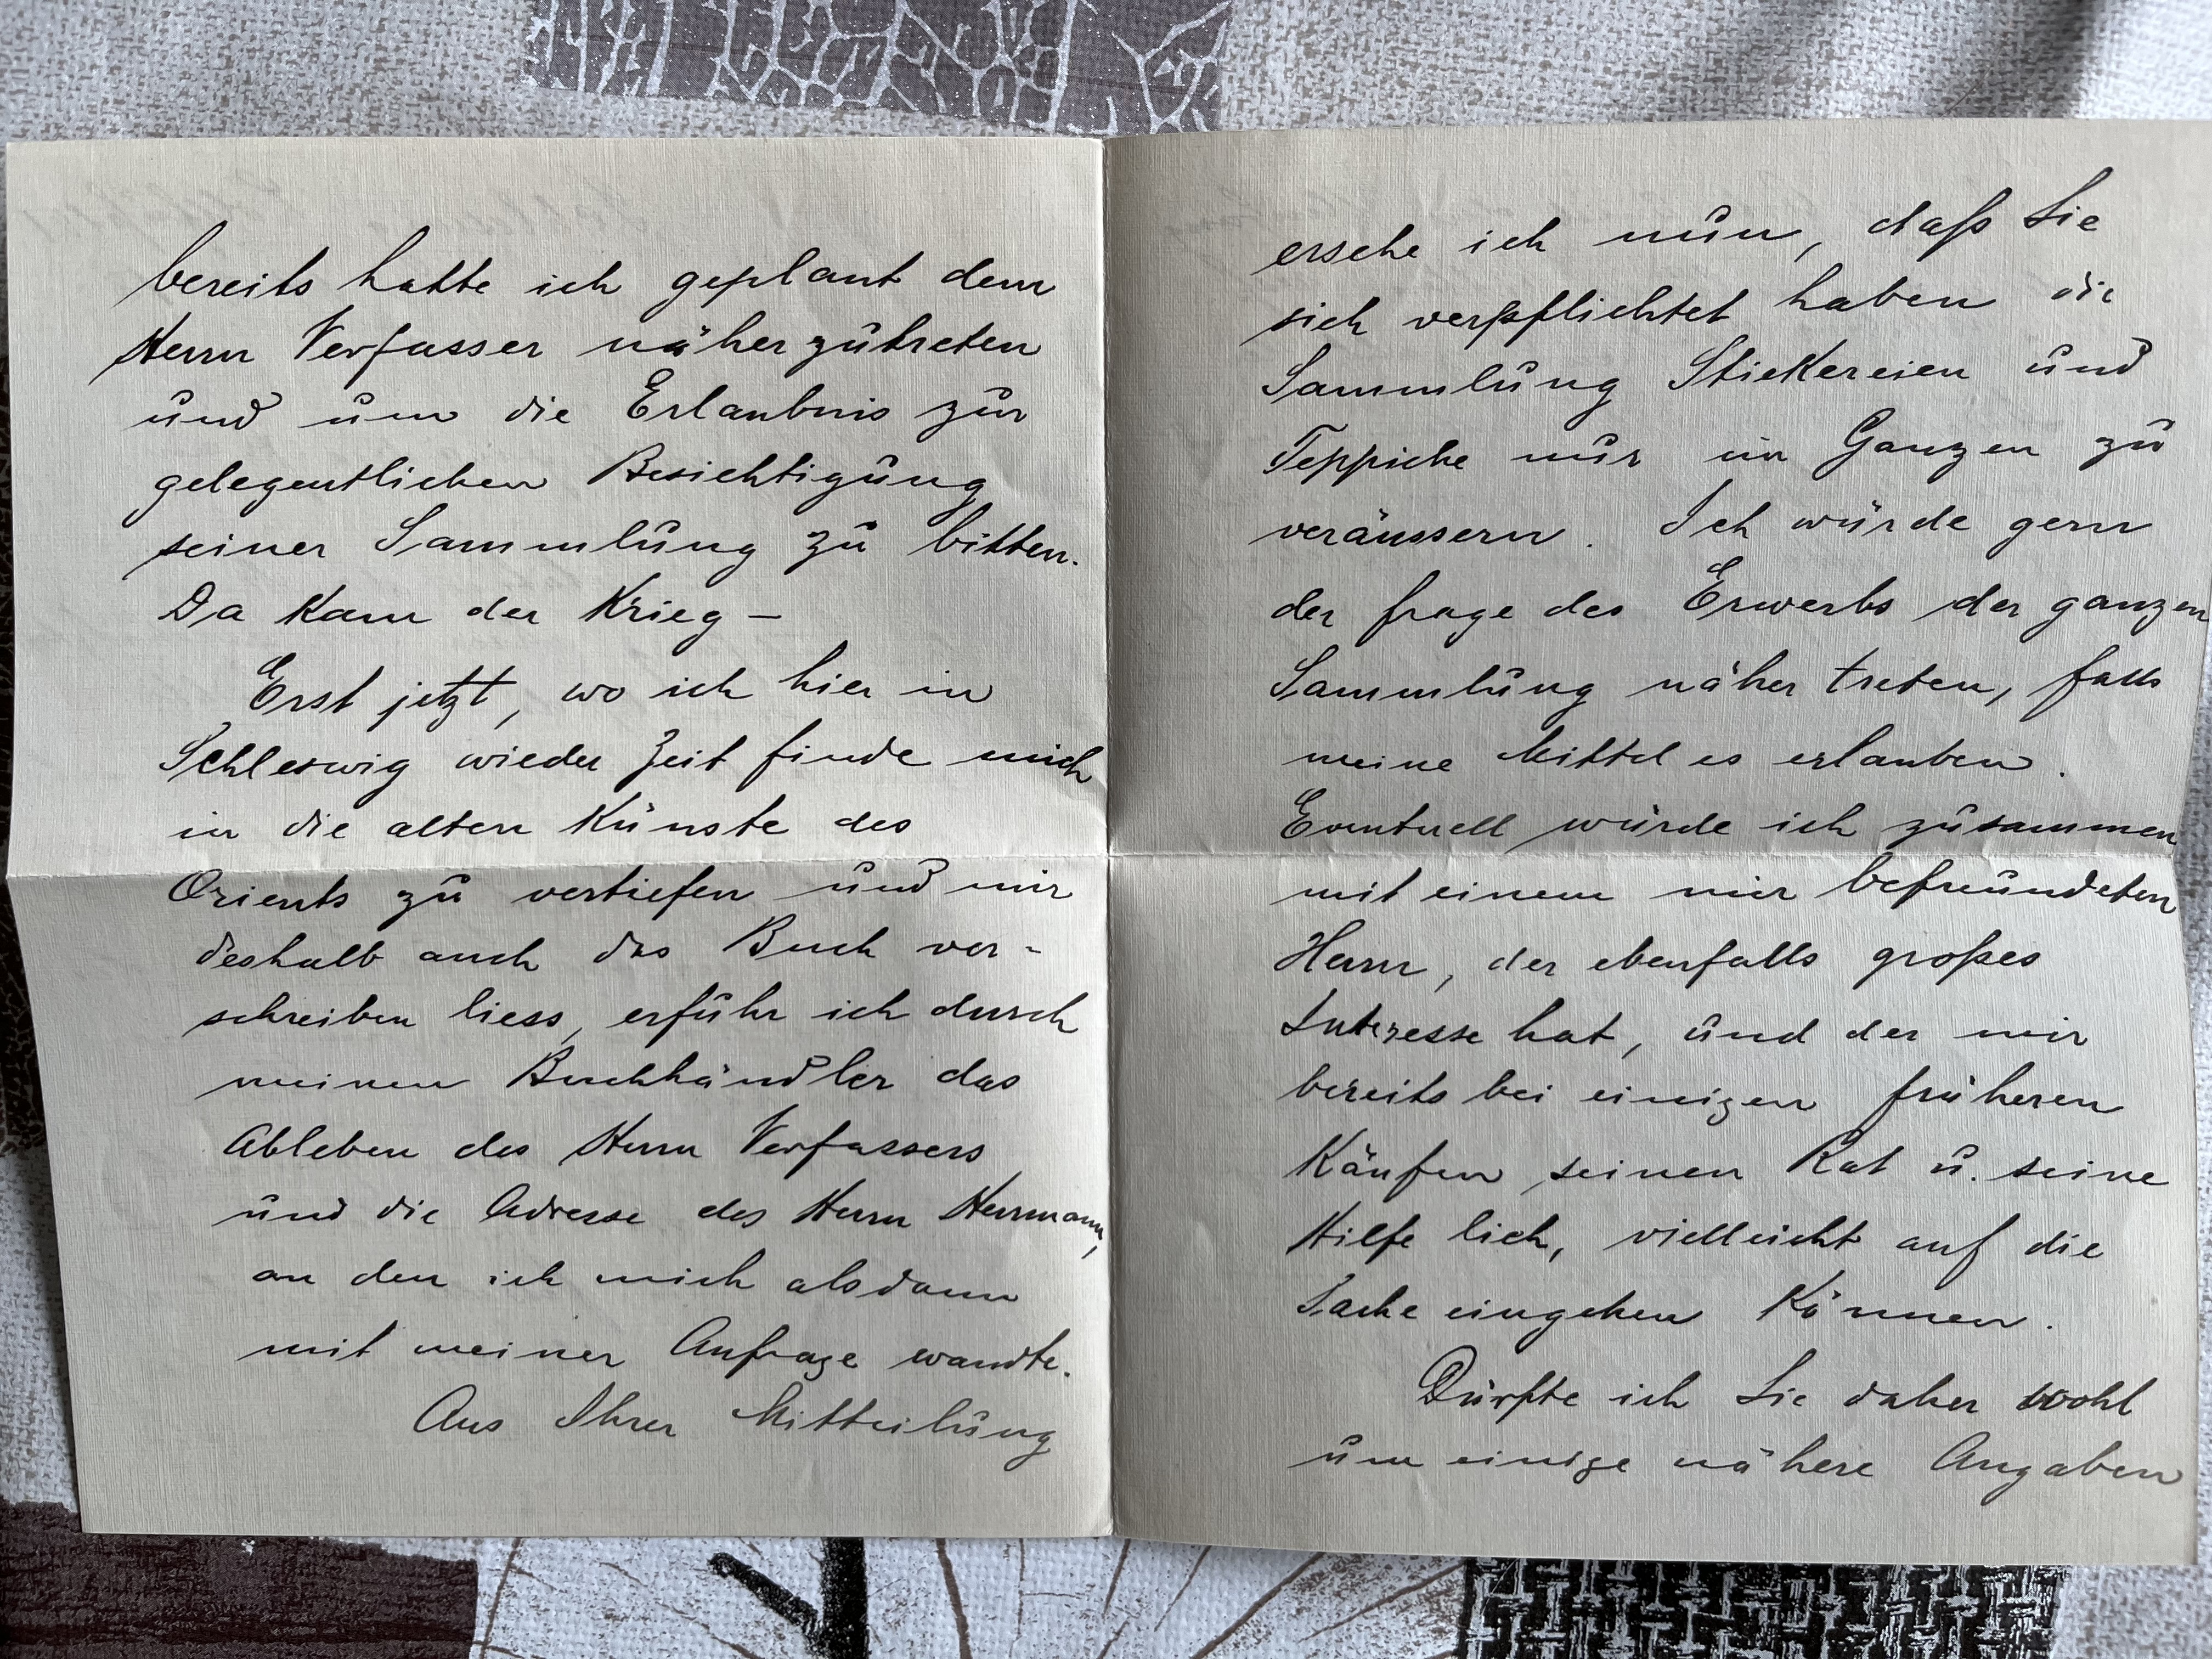 bereits hatte ich geplant dem
Herrn Verfasser näherzutreten
und um die Erlaubnis zur
gelegentlichen Besichtigung
seiner Sammlung zu bitten.
Da kam der Krieg –
Erst jetzt, wo ich hier in
Schleswig wieder Zeit finde mich
in die alten Künste des
Orients zu vertiefen und mir
deshalb auch das Buch ver-
schreiben liess, erfuhr ich durch
meinen Buchhändler das
Ableben des Herrn Verfassers
und die Adresse des Herrn Herrmann,
an den ich mich alsdann
mit meiner Anfrage wandte.
Aus Ihrer Mitteilung
ersehe ich nun, daß Sie
sich verpflichtet haben die
Sammlung Stickereien und
Teppiche nur im Ganzen zu
veräussern. Ich würde gern
der Frage des Erwerbs der ganzen
Sammlung näher treten, falls
meine Mittel es erlauben.
Eventuell würde ich zusammen
mit einem mir befreundeten
Herrn, der ebenfalls großes
Interesse hat, und der mir
bereits bei einigen früheren
Käufen seinen Rat u. seine
Hilfe lieh, vielleicht auf die
Sache eingehen können.
Dürfte ich Sie daher wohl
um einige nähere Angaben